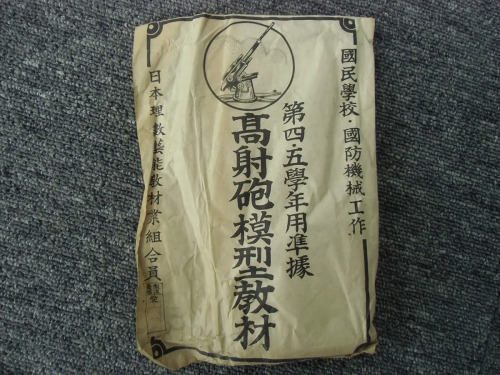 國民學校・國防機械工作
第四・五學年用準據
高射砲模型教材
日本理數藝能教材業組合員